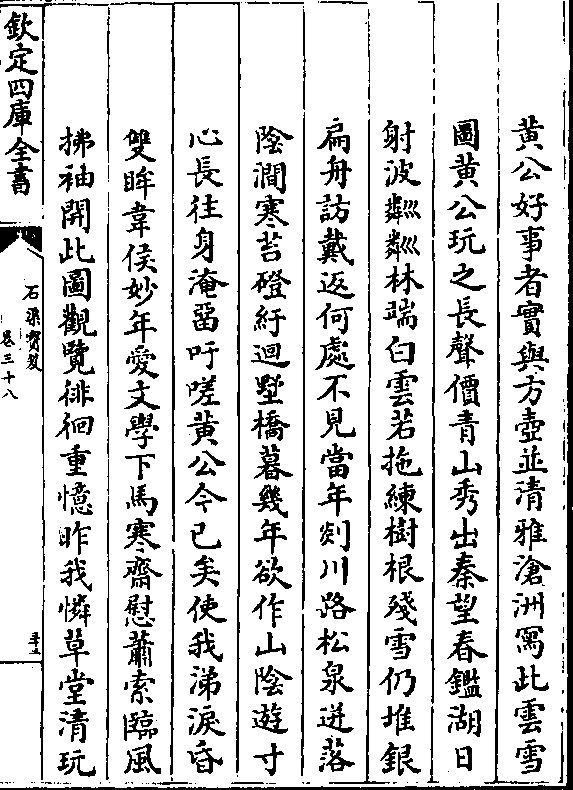 黄公好事者實與方壺並清雅滄洲寫此雲雪
圖黄公玩之長聲價青山秀出秦望春鑑湖日
射波粼粼林端白雲若拖練樹根殘雪仍堆銀
扁舟訪戴返何處不見當年剡川路松泉迸落
陰澗寒苔磴紆迴墅橋暮幾年欲作山陰遊寸
心長往身淹留吁嗟黄公今已矣使我涕淚昏
雙眸韋侯妙年愛文學下馬寒齋慰蕭索臨風
拂袖開此圖觀覽徘徊重憶昨我憐草堂清玩
欽定四庫全書
石渠寶笈
卷三十八